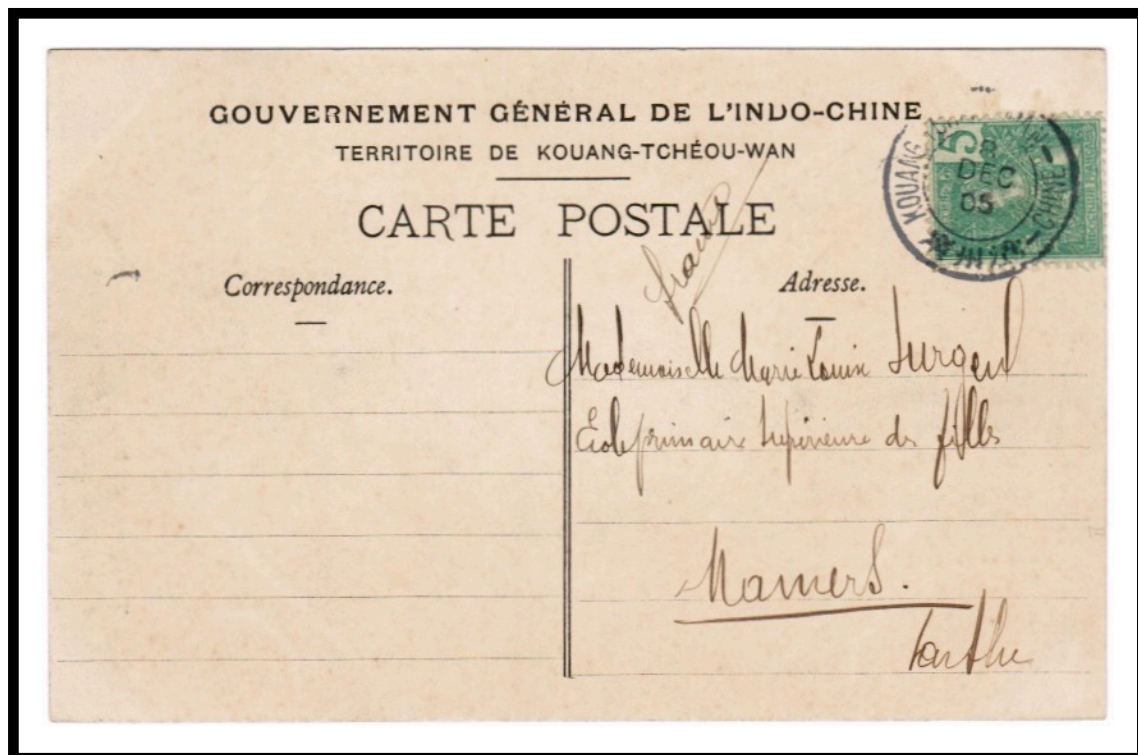 GOUVERNEMENT GÉNÉRAL DE L'INDO-CHINE
TERRITOIRE DE KOUANG-TCHÉOU-WAN
CARTE POSTALE
5
KOUANG
8
DEC
05
CHINE
france
Correspondance.
Adresse.
Mademoiselle Marie Louise Surgend
École primaire Supérieure de filles
Mamers.
Sarthe